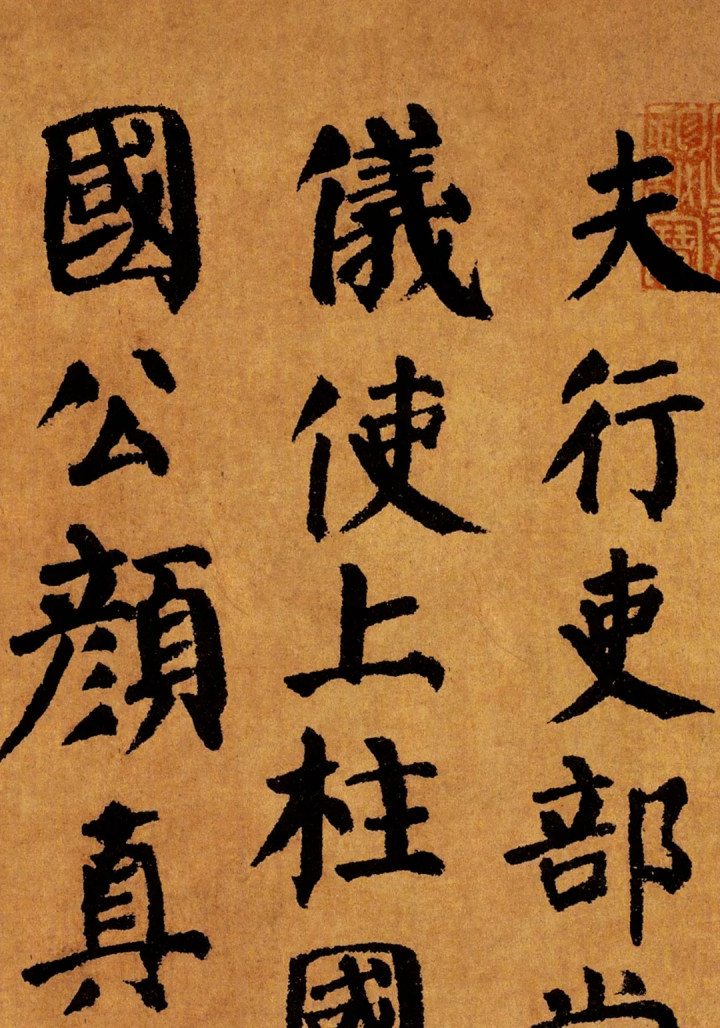 夫行吏部尚
儀使上柱國
國公顏真